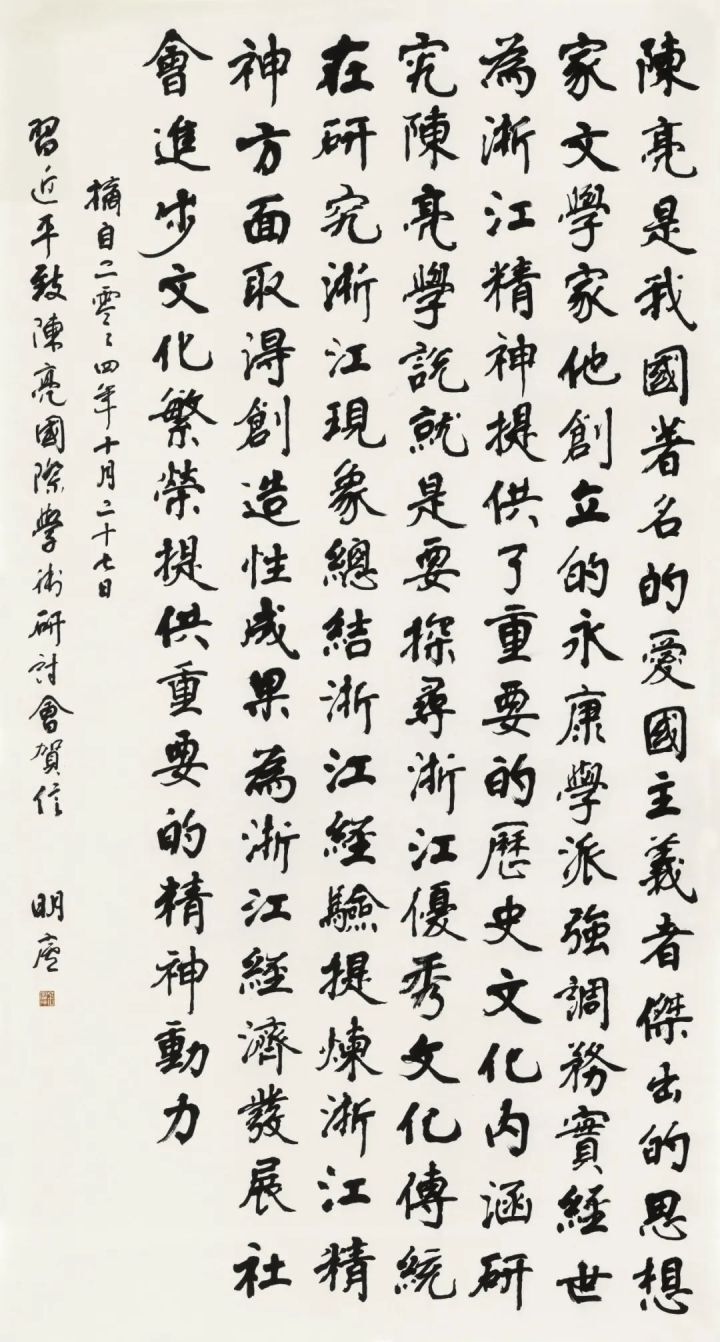 陳亮是我國著名的愛國主義者傑出的思想
家文學家他創立的永康學派強調務實經世
為浙江精神提供了重要的歷史文化内涵研
究陳亮學説就是要探尋浙江優秀文化傳統
在研究浙江現象總結浙江經驗提煉浙江精
神方面取得創造性成果為浙江經濟發展社
會進步文化繁榮提供重要的精神動力
摘自二零零四年十月二十七日
習近平致陳亮國際學術研討會賀信 明廬